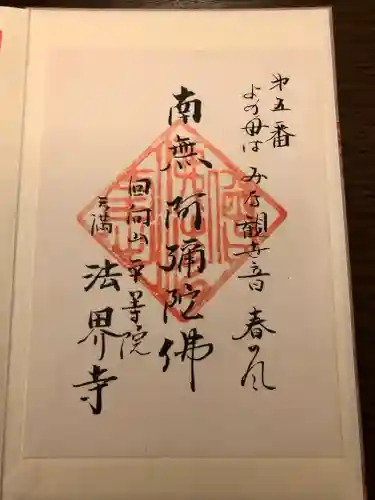 第五番
よの母は みな観世音 春の風
南無阿彌陀佛
回向山 平等院
三浦 法界寺
佛法僧寶